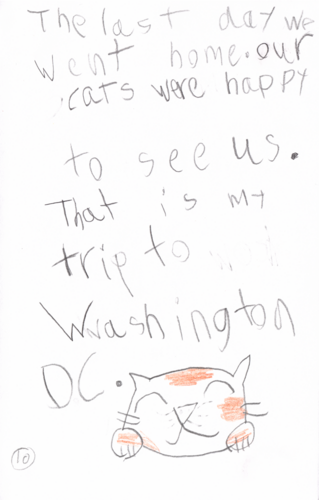 The last day we
went home. our
cats were happy
to see us.
That is my
trip to
Washington
DC.
10